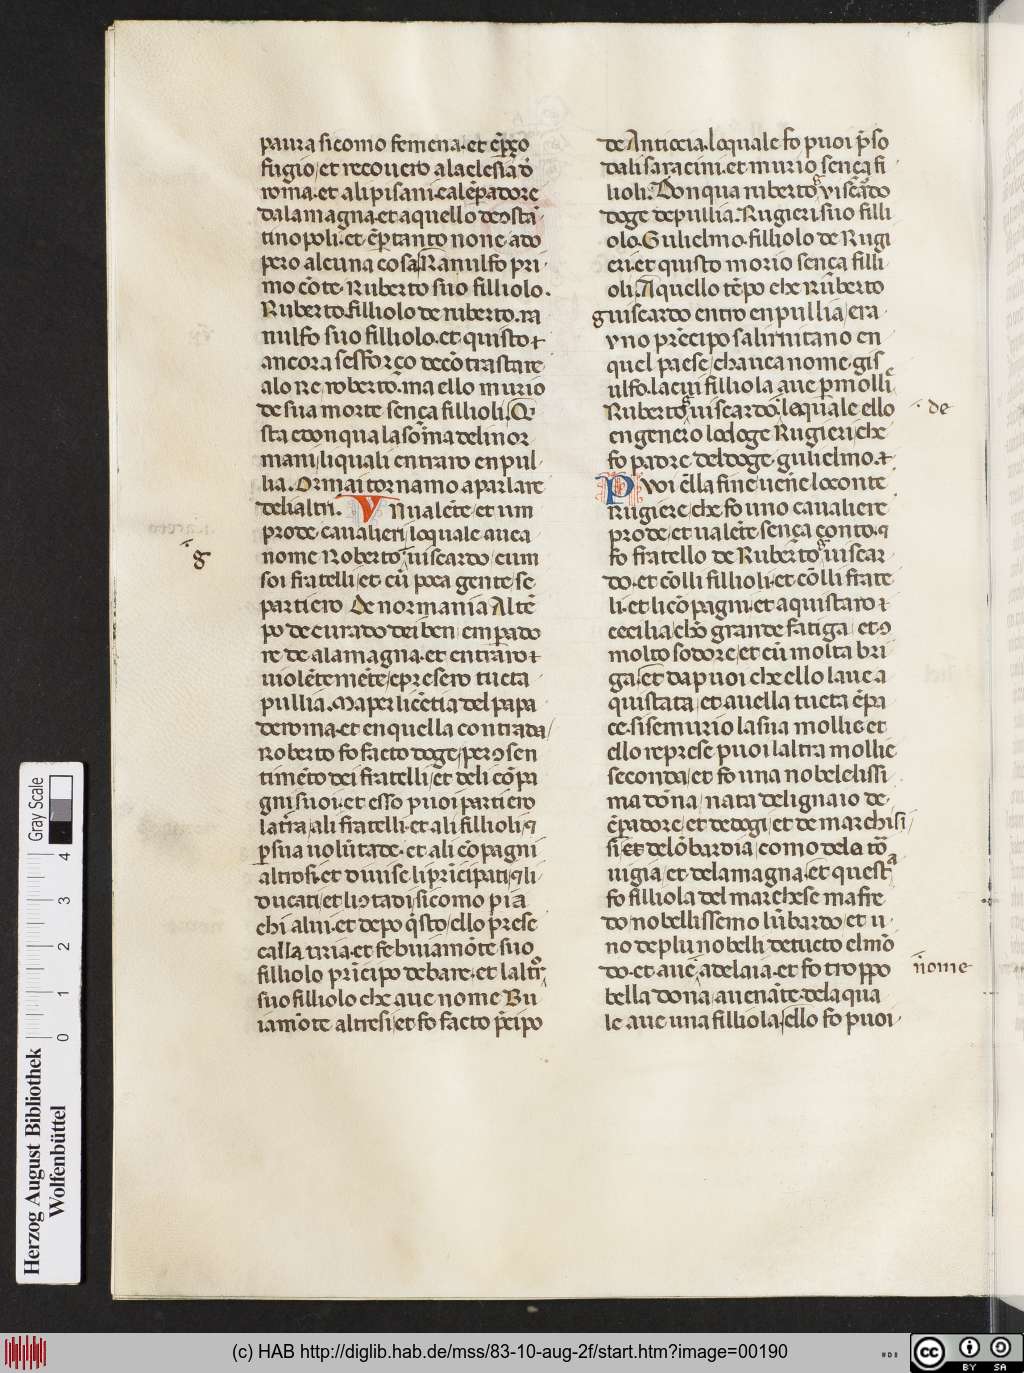 paura si como femena. et ep̄ço
fugio/ et recouero a la clesia d̄
roma. et ali pisani. et al ēpadore
dala magna. et aquello de ɔstā
tinopoli. et ep̄ tanto none ado
pero alcuna cosa/ Ranulfo pri
mo cōte. Ruberto suo filliolo.
Ruberto. filliolo de ruberto. ra
nulfo suo filliolo. et quisto ⁊
ancora se sforço de cōtrastare
alo re roberto. ma ello murio
de sua morte sença fillioli. Q
sta e donqua la som̄a deli nor
mani/ li quali entraro en pul
lia. Ormai tornamo a parlare
deli altri. Vn ualēte. et um
prode. caualieri/ lo quale auea
nome Roberto uiscardo/ cum
g
soi fratelli/ et cū poca gente/ se
partiero De normania Al tē
po de curado dei ben/ empado
re de alamagna. et entraro ⁊
uiolētemēte/ e presero tucta
pullia. Ma per licētia del papa
de roma. et en quella contrada/
Roberto fo facto doge/ per ɔsen
timēto dei fratelli/ et deli cōpa
gni suoi. et esso puoi partiero
la tr̄a/ ali fratelli. et ali fillioli/ ⁊
p sua uolūtade. et ali cōpagni
altresi. et diuise li prīcipati/ ⁊ li
ducati/ et li ɔtadi/ si como pia
chi a lui. et depo q̄sto/ ello prese
calla uria. et fe buiamōte suo
filliolo prīcipo de bare. et l altr̄o
suo filliolo che aue nome Bu
iamōte altresi/ et fo facto pr̄cipo
de Antiocia. lo quale fo puoi p̄so
dali saracini. et murio sença fi
lioli. Donqua ruberto g uiscardo
doge de pullia. Rugieri suo filli
olo. Gulielmo. filliolo de Rugi
eri. et quisto morio sença filli
oli. A quello tēpo che ruberto
guiscardo entro en pullia/ era
vno prēcipo salirnitano en
quel paese/ ch auea nome. gis
ulfo. la cui filliola aue p mollē
Ruberto g uiscardo/ lo quale ello
de
engenero lo doge Rugieri/ che
fo padre del doge. gulielmo. ⁊
Puoi ēlla fine uene lo conte
Rugiere/ che fo uno caualiere
prode/ et ualēte sença conto. ⁊
fo fratello de Ruberto g uiscar
do. et cōlli fillioli. et cōlli frate
li. et li cōpagni. et aquistaro ⁊
cecilia/ ebb grande fatiga/ et ɔ
molto sodore/ et cū molta bri
ga. et da puoi che ello l aue a
quistata/ et auella tucta ēpa
ce. si se murio la sua mollie et
ello represe puoi l altra mollie
seconda/ et fo una nobelelissi
ma dōna/ nata de lignaio de
ēpadore/ et de dogi/ et de marchisi
si. et de lōbardia/ como de la tō
uigia/ et dela magna. et questa
fo filliola del marchese mafre
do nobellissemo lūbardo et u
no de plu nobelli de tucto el mō
do. et aue adelaia. et fo troppo
n̄ome
bella dona/ auenāte. dela qua
le aue una filliola/ ello fo puoi
Gray Scale
0 1 2 3 4
Herzog August Bibliothek
Wolfenbüttel
(c) HAB http://diglib.hab.de/mss/83-10-aug-2f/start.htm?image=00190
cc BY SA